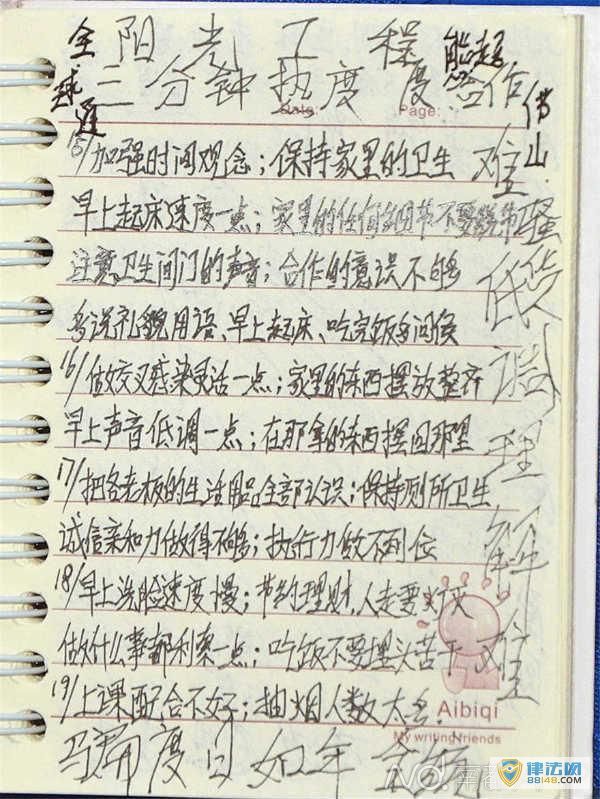 全 阳 光 工 程 能超
越 三 分 钟 热 度 度 合作
通 Date: Page: 佛
15/加强时间观念；保持家里的卫生 难 山
早上起床速度一点；家里的任何细节不要
注意卫生间门的声音；合作的意识不够 低
多说礼貌用语、早上起床、吃完饭多问候 调
16/做交叉感染灵活一点；家里的东西摆放整齐
早上声音低调一点；在那拿的东西摆回那里 理
17/把各老板的生活用品全部认识；保持厕所卫生
诚信亲和力做得不够；执行力做不到位 解
18/早上洗脸速度慢；节约理财，人走要灯灭
做什么事都利索一点；吃饭不要埋头苦干 难
19/上课配合不好；抽烟人数太多.
Aibiqi
My writing friends
度日如年
N 南都
律法网
88148.COM